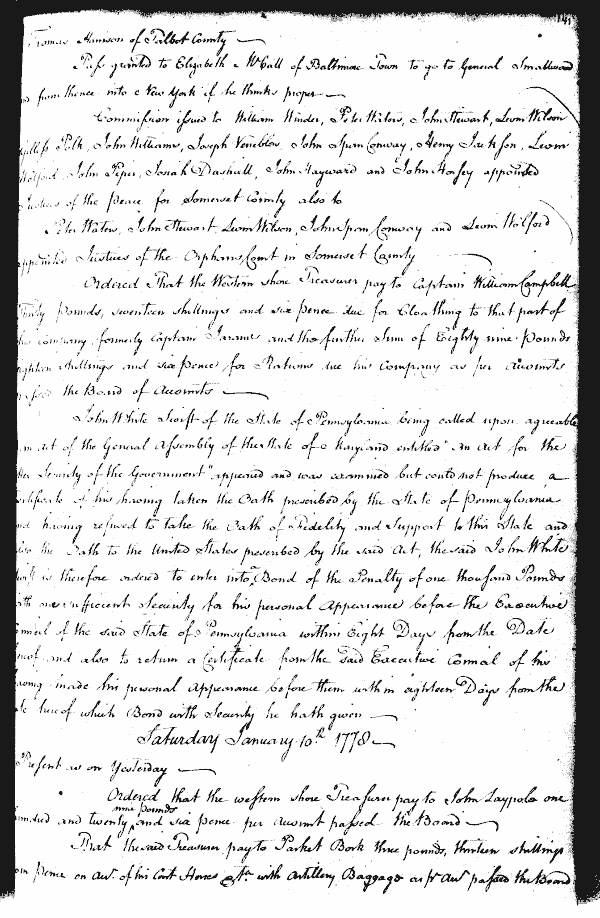 Thomas Harrison of Talbot County
Pass granted to Elizabeth McCall of Baltimore Town to go to General Smallwood
from thence into New York if he thinks proper
Commission issued to William Winder, Peter Waters, John Stewart, Levin Wilson
Polk, John Williams, Joseph Venables, John Span Conway, Henry Jackson, Levin
John Piper, Josiah Dashiell, John Hayward and John Horsey appointed
Justices of the Peace for Somerset County also to
Peter Waters, John Stewart, Levin Wilson, John Span Conway and Levin Wolford
appointed Justices of the Orphans Court in Somerset County
Ordered That the Western shore Treasurer pay to Captain William Campbell
Pounds, seventeen shillings and six pence due for Cloathing to that part of
his Company, formerly Captain and the further Sum of Eighty nine Pounds
shillings and six pence for Rations due his Company as per Accounts
passed the Board of Accounts
John White Swift of the State of Pennsylvania being called upon agreeable
an Act of the General Assembly of the State of Maryland entitled "An Act for the
Security of the Government" appeared and was examined but could not produce a
Certificate of his having taken the Oath prescribed by the State of Pennsylvania
and having refused to take the Oath of Fidelity and Support to this State and
also the Oath to the United States prescribed by the said Act, the said John White
Swift is therefore ordered to enter into a Bond of the Penalty of one thousand Pounds
with sufficient Security for his personal Appearance before the Executive
Council of the said State of Pennsylvania within Eight Days from the Date
and also to return a Certificate from the said Executive Council of his
having made his personal Appearance before them within eighteen Days from the
hereof which Bond with Security he hath given
Saturday January 10th 1778
Present as on Yesterday
Ordered that the western shore Treasurer pay to John Laypole one
hundred and twenty nine pounds and six pence per Account passed the Board
That the said Treasurer pay to Parket Bork three pounds, thirteen shillings
pence on Acct. of his Cart Horses &ca. with Artillery Baggage as pr Acct passed the Board